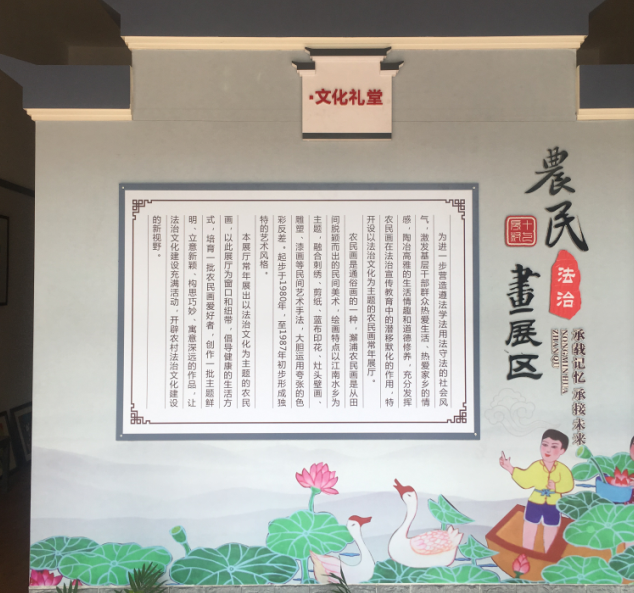 ·文化礼堂
農民畫展区
法治
承载记忆 承接未来
NONGMINHUA
ZHANQU
为进一步营造遵法学法用法守法的社会风
气，激发基层干部群众热爱生活、热爱家乡的情
感，陶冶高雅的生活情趣和道德修养，充分发挥
农民画在法治宣传教育中的潜移默化的作用，特
开设以法治文化为主题的农民画常年展厅。
农民画是通俗画的一种，澥浦农民画是从田
间脱颖而出的民间美术，绘画特点以江南水乡为
主题，融合刺绣、剪纸、蓝布印花、灶头壁画、
雕塑、漆画等民间艺术手法，大胆运用夸张的色
彩反差。起步于1980年，至1987年初步形成独
特的艺术风格。
本展厅常年展出以法治文化为主题的农民
画，以此展厅为窗口和纽带，倡导健康的生活方
式，培育一批农民画爱好者，创作一批主题鲜
明、立意新颖、构思巧妙、寓意深远的作品，让
法治文化建设充满活动，开辟农村法治文化建设
的新视野。